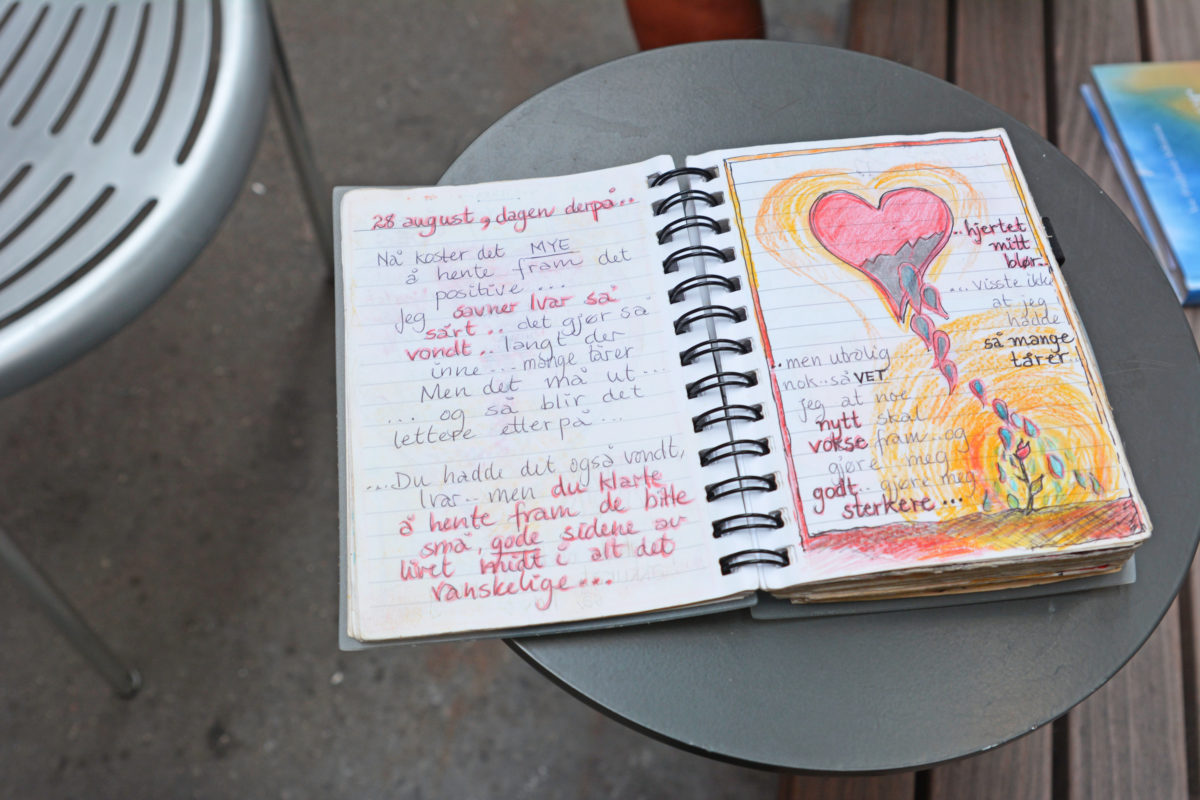 28 august, dagen derpå..
Nå koster det MYE
å hente fram det
positive ...
Jeg savner Ivar så
sårt .. det gjør så
vondt .. langt der
inne ... mange tårer
Men det må ut ...
... og så blir det
lettere etterpå ...
...Du hadde det også vondt,
Ivar .. men du klarte
å hente fram de bitte
små, gode sidene av
livet midt i alt det
vanskelige ...
..hjertet
mitt
blør..
... visste ikke
at jeg
hadde
så mange
tårer..
..men utrolig
nok..så VET
jeg at noe
nytt skal
vokse fram..og
gjøre meg
godt.. gjøre meg
sterkere...